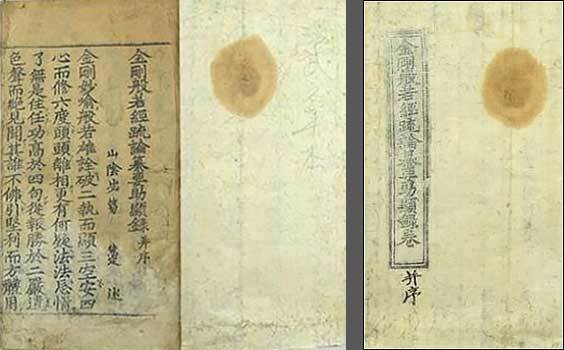 金剛般若經疏論纂要助顯錄 并序
山陰 述
金剛妙喻般若雄詮破二執而顯三空安四
心而修六度頭頭離相更有何疑法法 情
了無是住任功高於四句從報勝於二嚴遺
色聲而絶見聞其誰不佛引堅利而方體用
金剛般若經疏論纂要助顯錄卷
并序